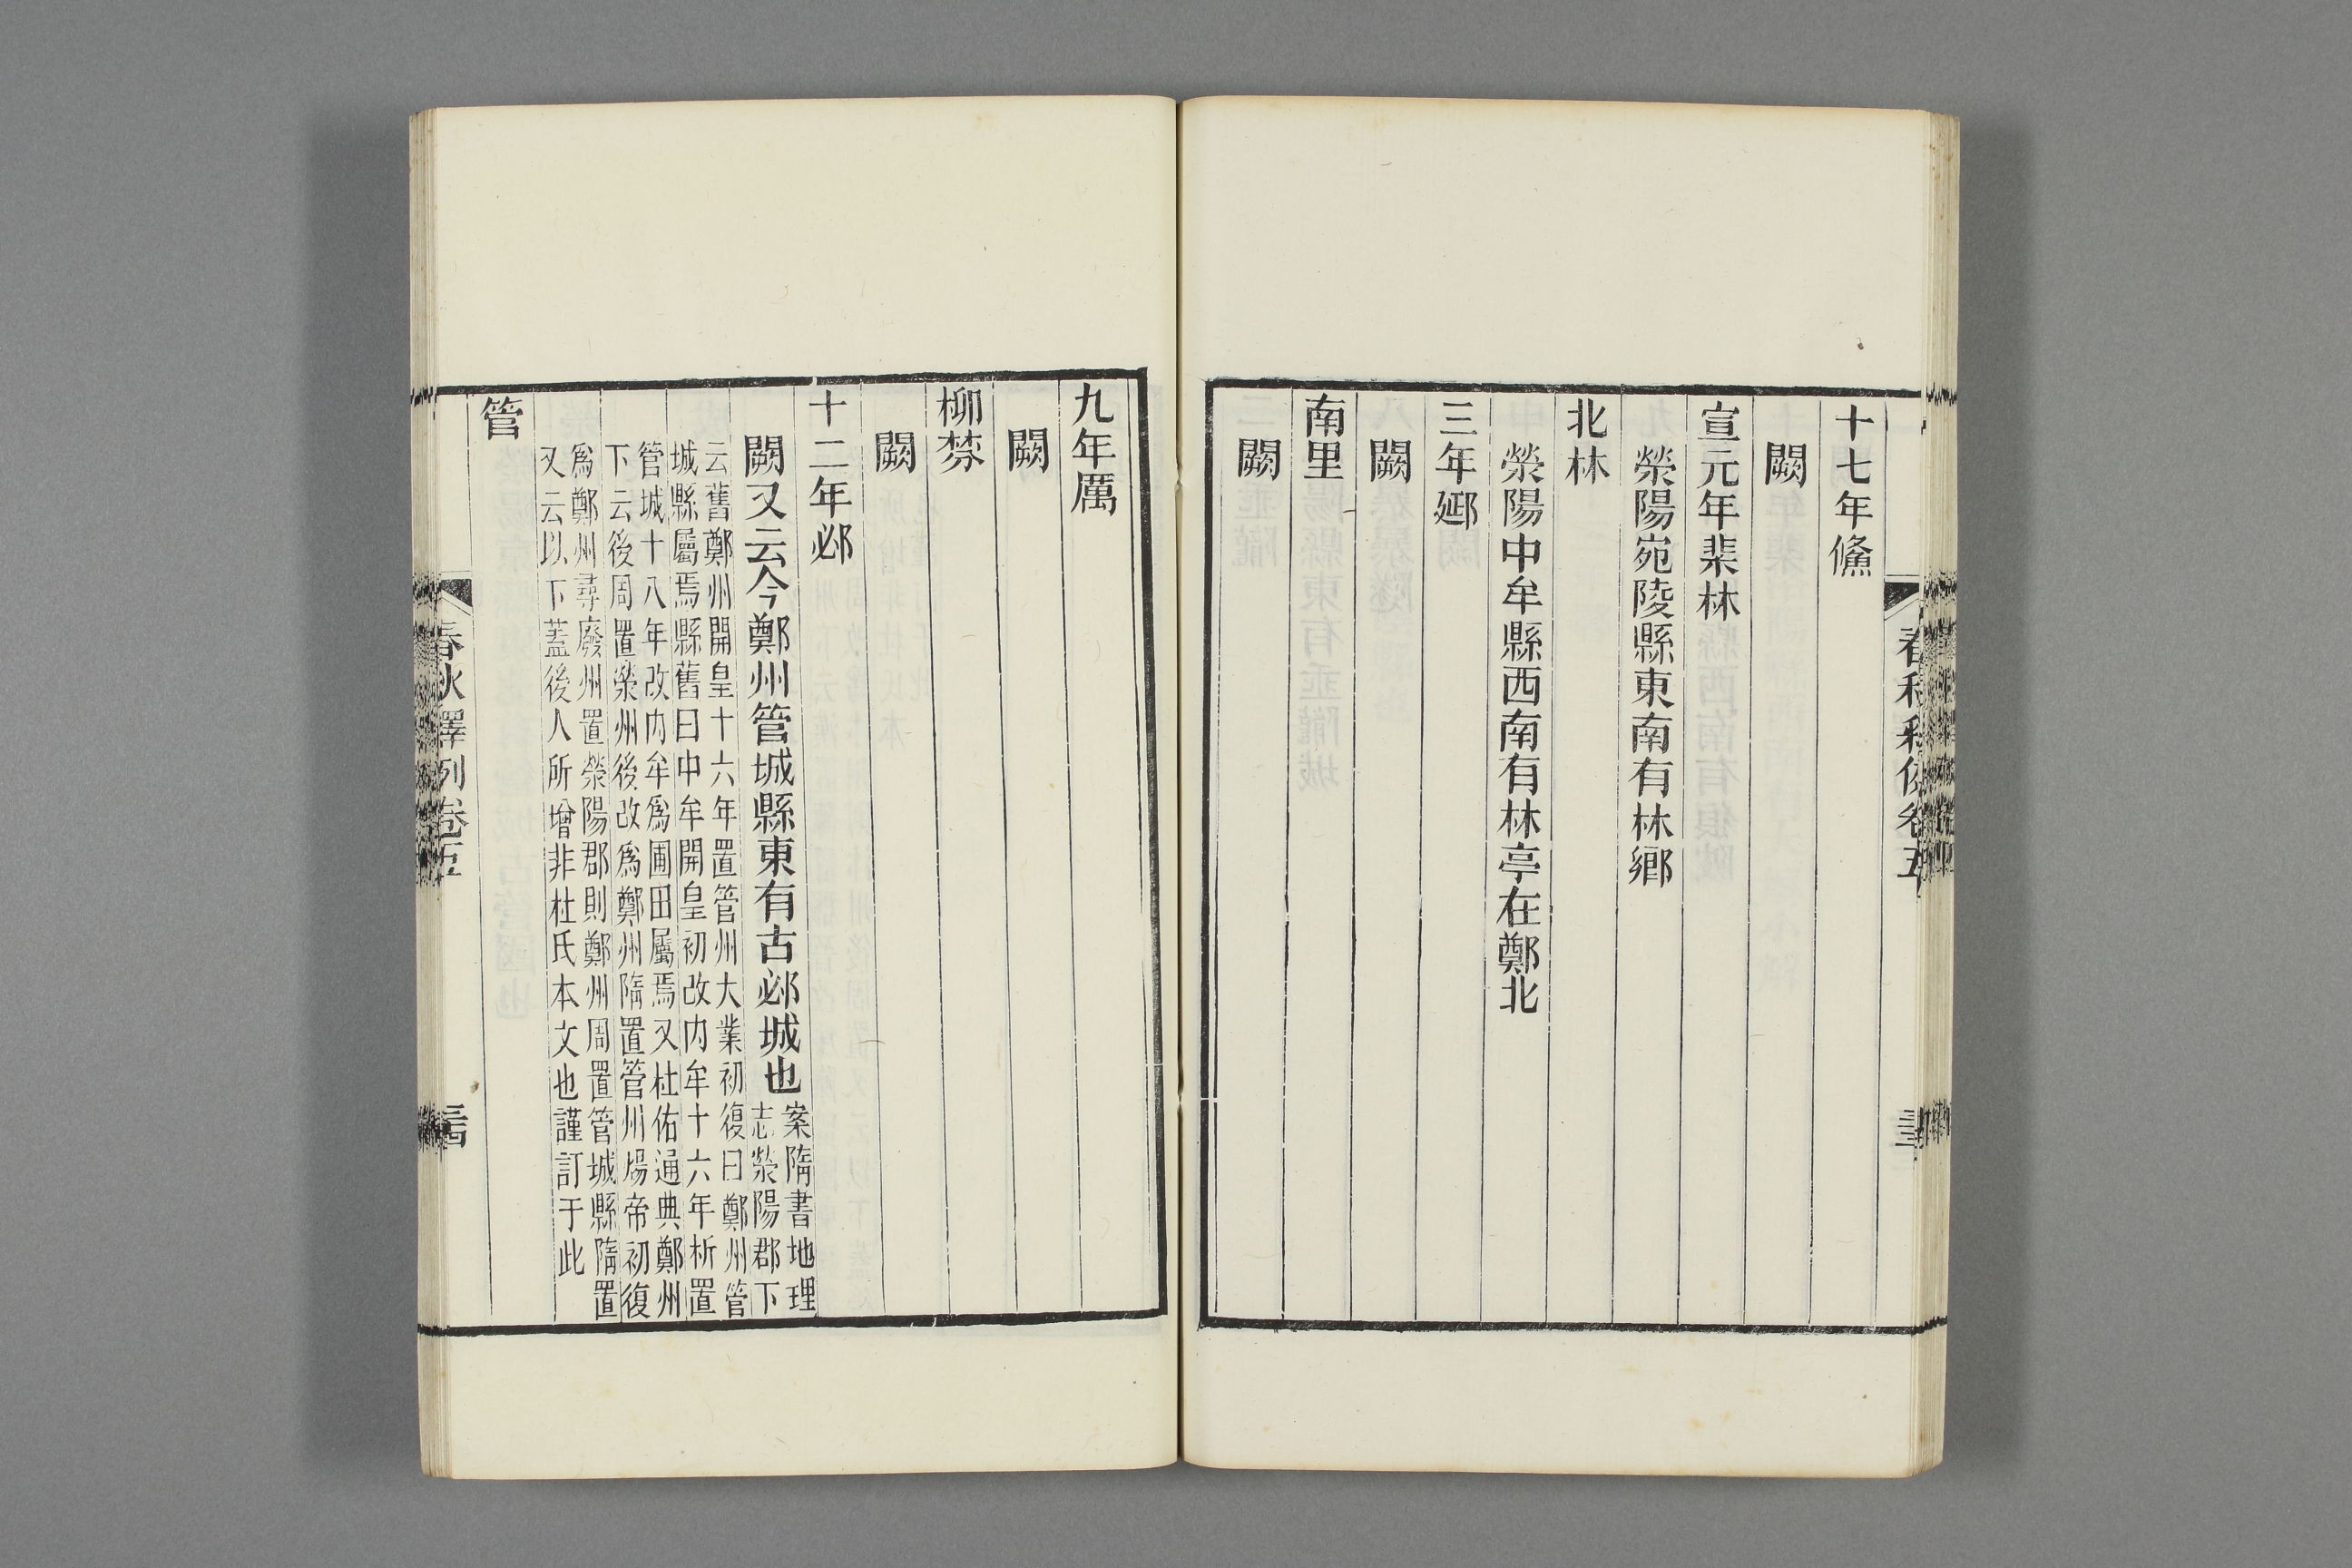 十七年鯈
闕
宣元年棐林
滎陽宛陵縣東南有林鄉
北林
滎陽中牟縣西南有林亭在鄭北
三年郔
闕
南里
闕
九年厲
闕
柳棼
闕
十二年邲
闕又云今鄭州管城縣東有古邲城也案隋書地理
志滎陽郡下
云舊鄭州開皇十六年置管州大業初復曰鄭州管
城縣屬焉縣舊曰中牟開皇初改内牟十六年析置
管城十八年改内牟爲圃田屬焉又杜佑通典鄭州
下云後周置滎州後改爲鄭州隋置管州煬帝初復
爲鄭州尋廢州置滎陽郡則鄭州周置管城縣隋置
又云以下蓋後人所增非杜氏本文也謹訂于此
管
春秋釋例卷五